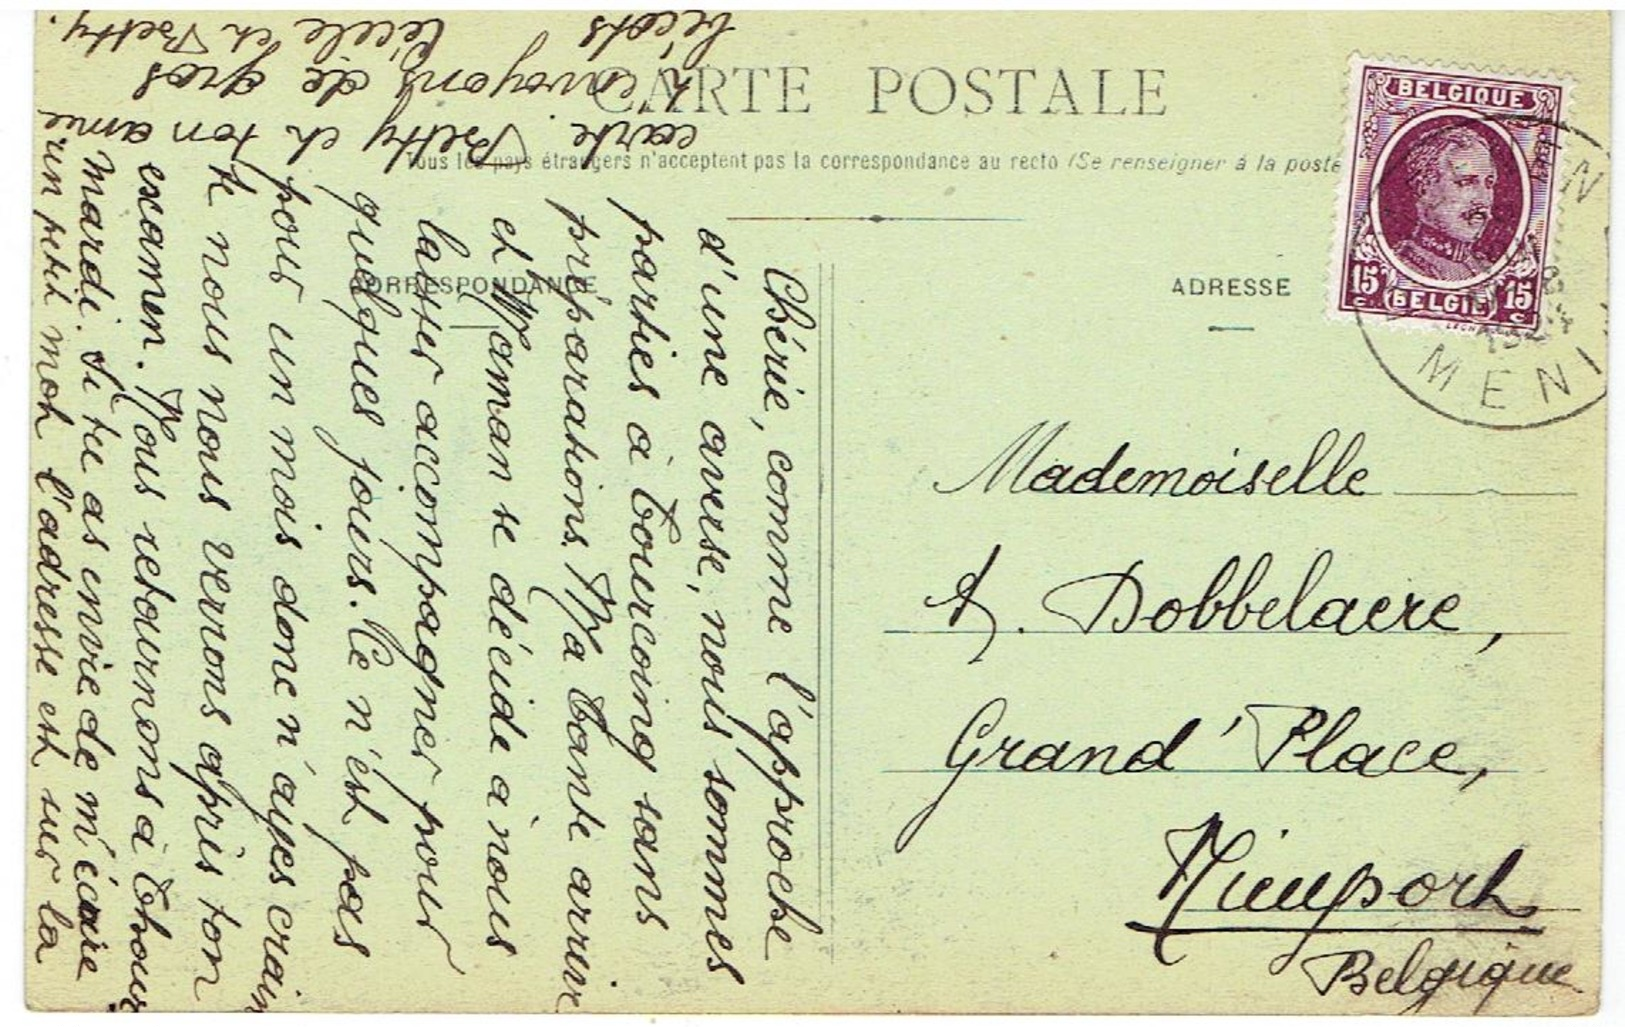 CARTE POSTALE
Tous les pays étrangers n'acceptent pas la correspondance au recto (Se renseigner à la poste
CORRESPONDANCE
ADRESSE
BELGIQUE
15 c. (BELGIË) 15 c
MENI
Mademoiselle
A. Dobbelaere,
Grand' Place,
Nieuport
Belgique
Chérie, comme l'approche
d'une averse, nous sommes
parties à Tourcoing sans
préparations. Ma Tante arrive
et Maman se décide à nous
laisser accompagner pour
quelques jours. Ce n'est pas
pour un mois donc n'ayes crain
te nous nous verrons après ton
examen. Nous retournons à Thour
Mardi. Si tu as envie de m'écrire
un petit mot l'adresse est sur la
carte. Betty et ton amie
t'envoyons de gros
bécots Cécile et Betty.